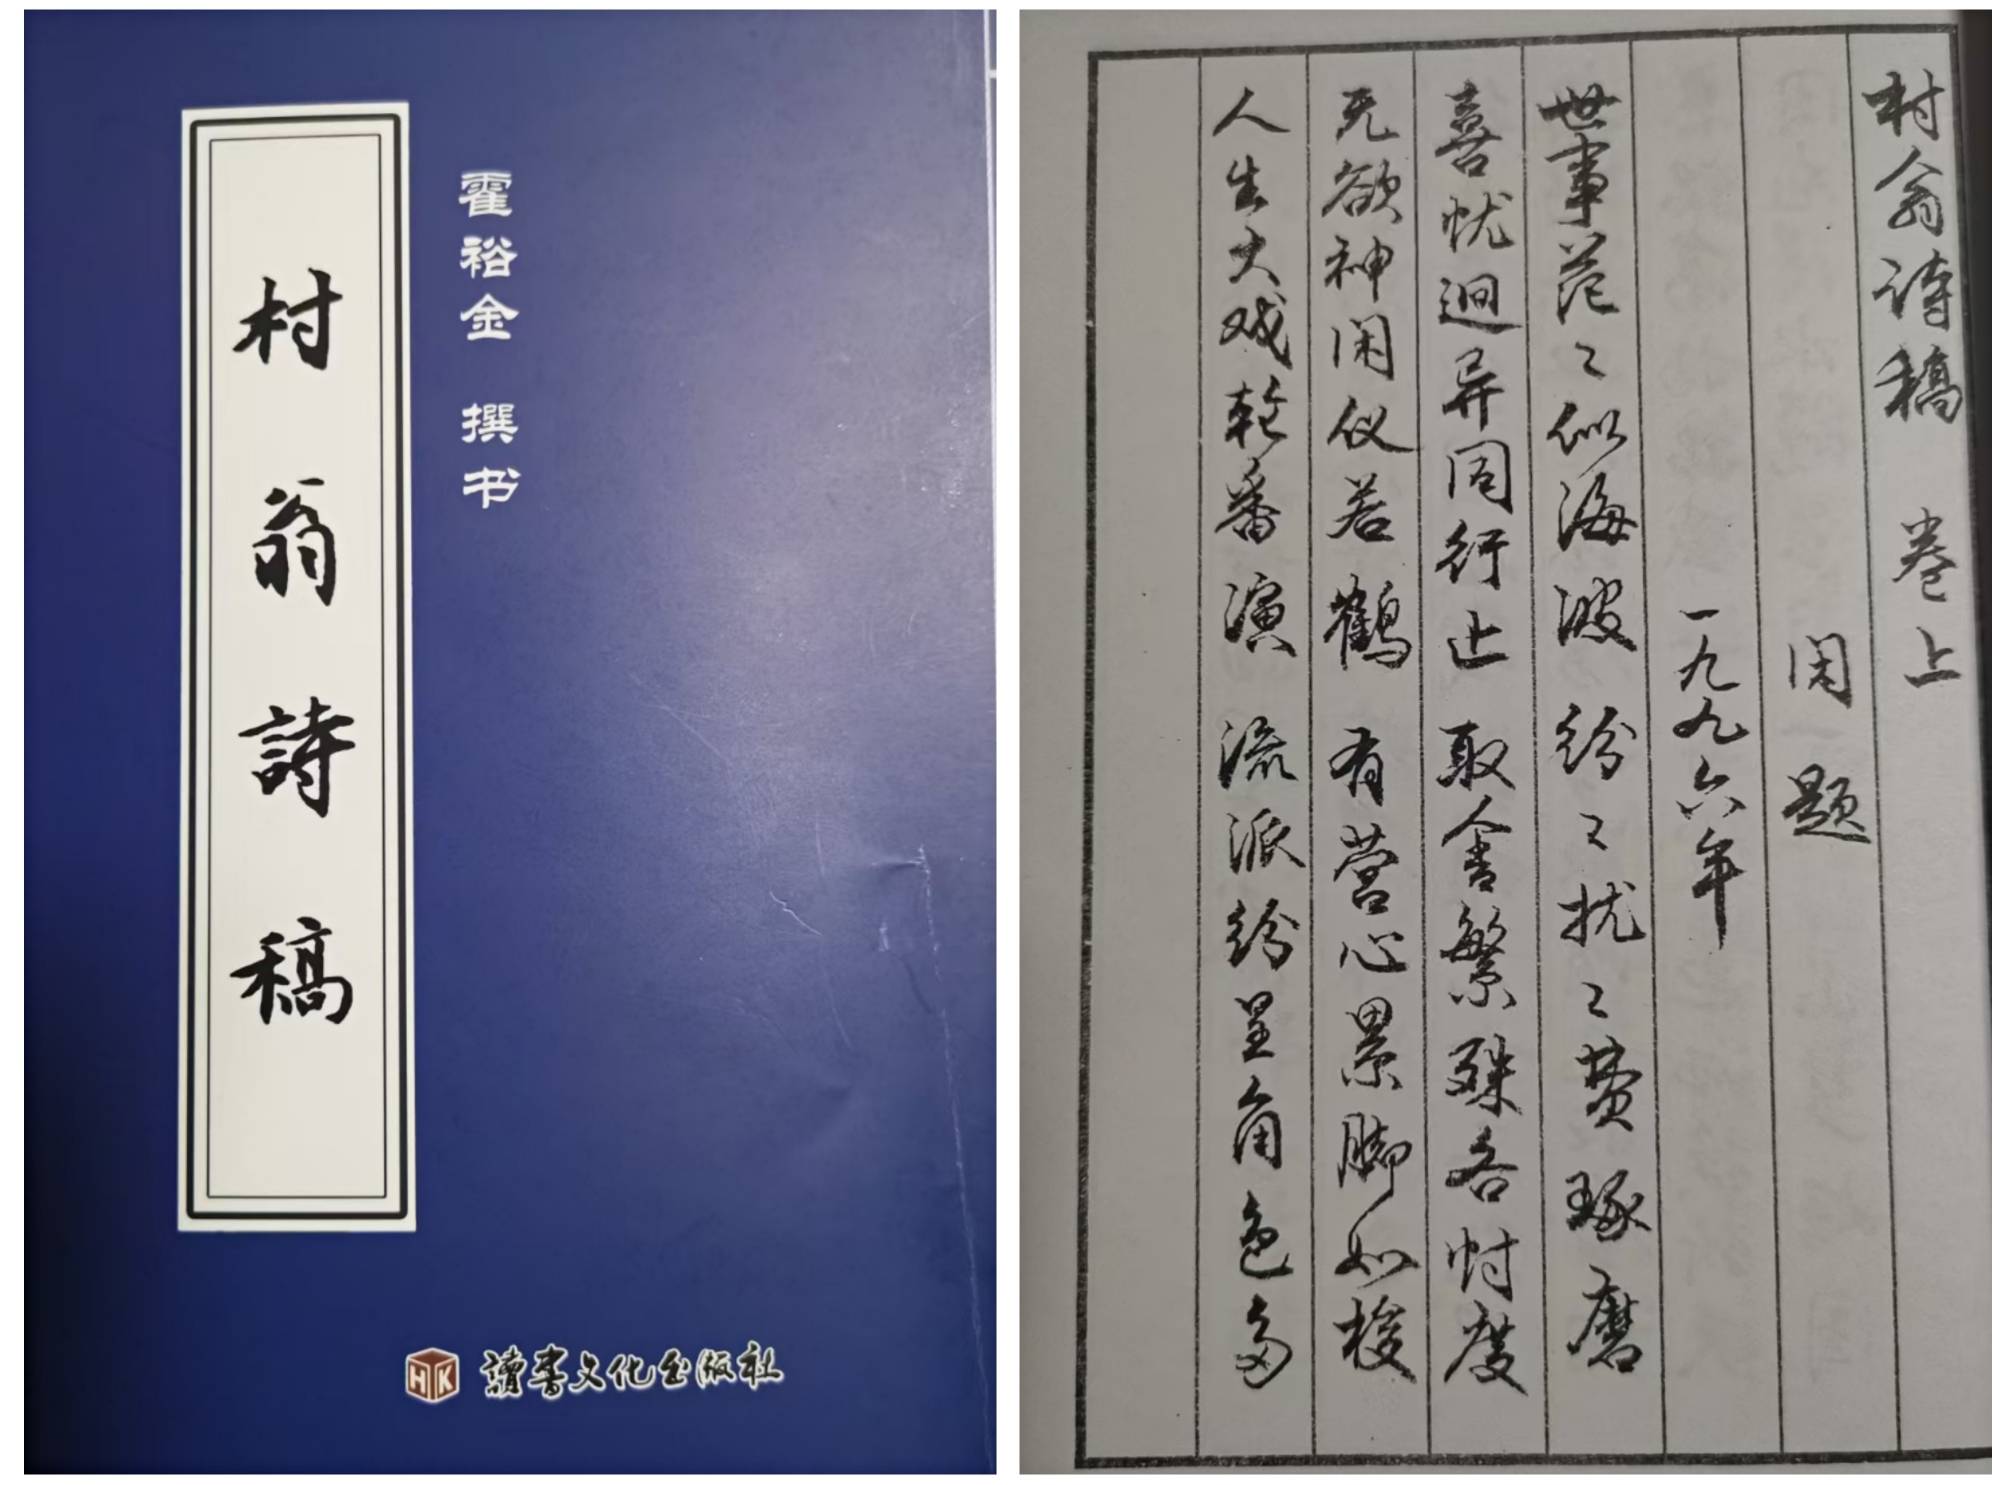 村翁詩稿
霍裕金 撰书
HK 讀書文化出版社
村翁诗稿 卷上
闲题
一九九六年
世事茫々似海波 纷々扰々费琢磨
喜忧迥异同行止 取舍繁殊各忖度
无欲神闲仪若鹤 有营心累脚如梭
人生大戏轮番演 流派纷呈角色多